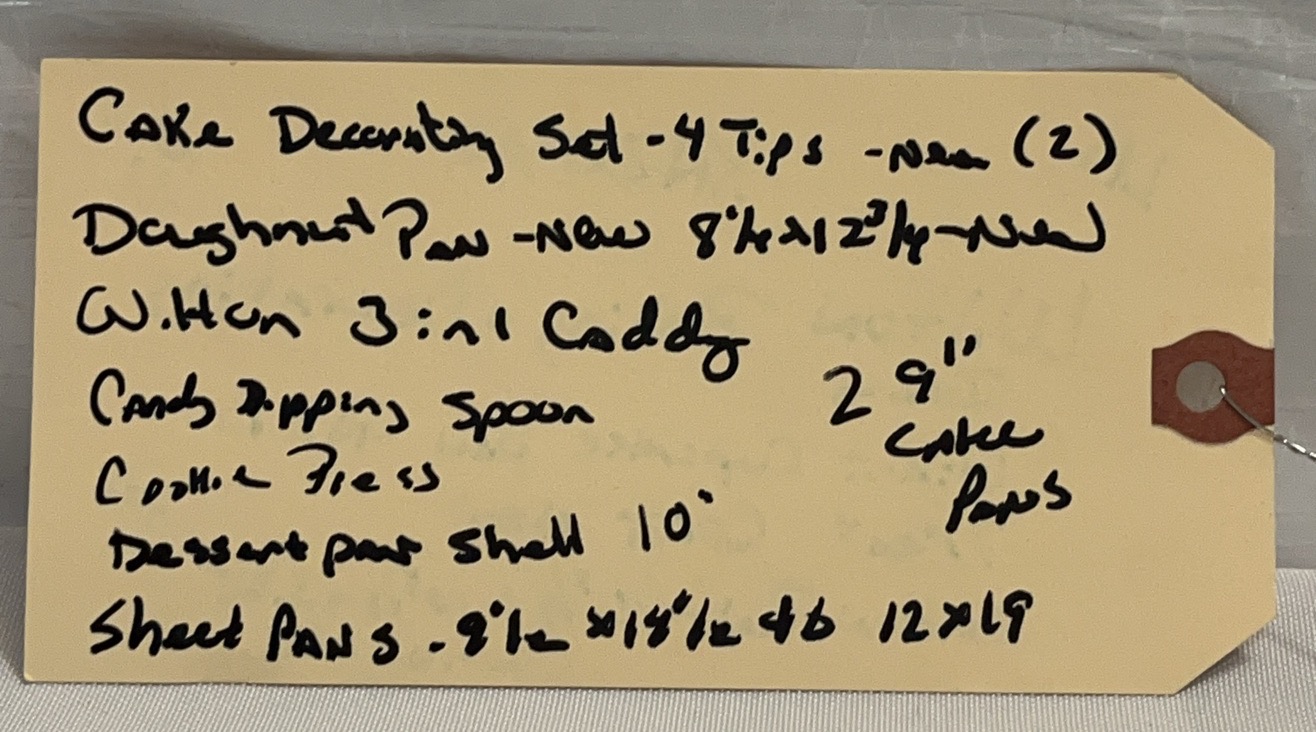 Cake Decorating Set - 4 Tips - New (2)
Doughnut Pan - New 8 1/4 x 12 3/4 - New
Wilton 3 in 1 Caddy
Candy Dipping Spoon
Cookie Press
Dessert pan shell 10"
Sheet PANS - 9 1/2 x 18 1/2 12x19
2 9"
CAKE
PANS